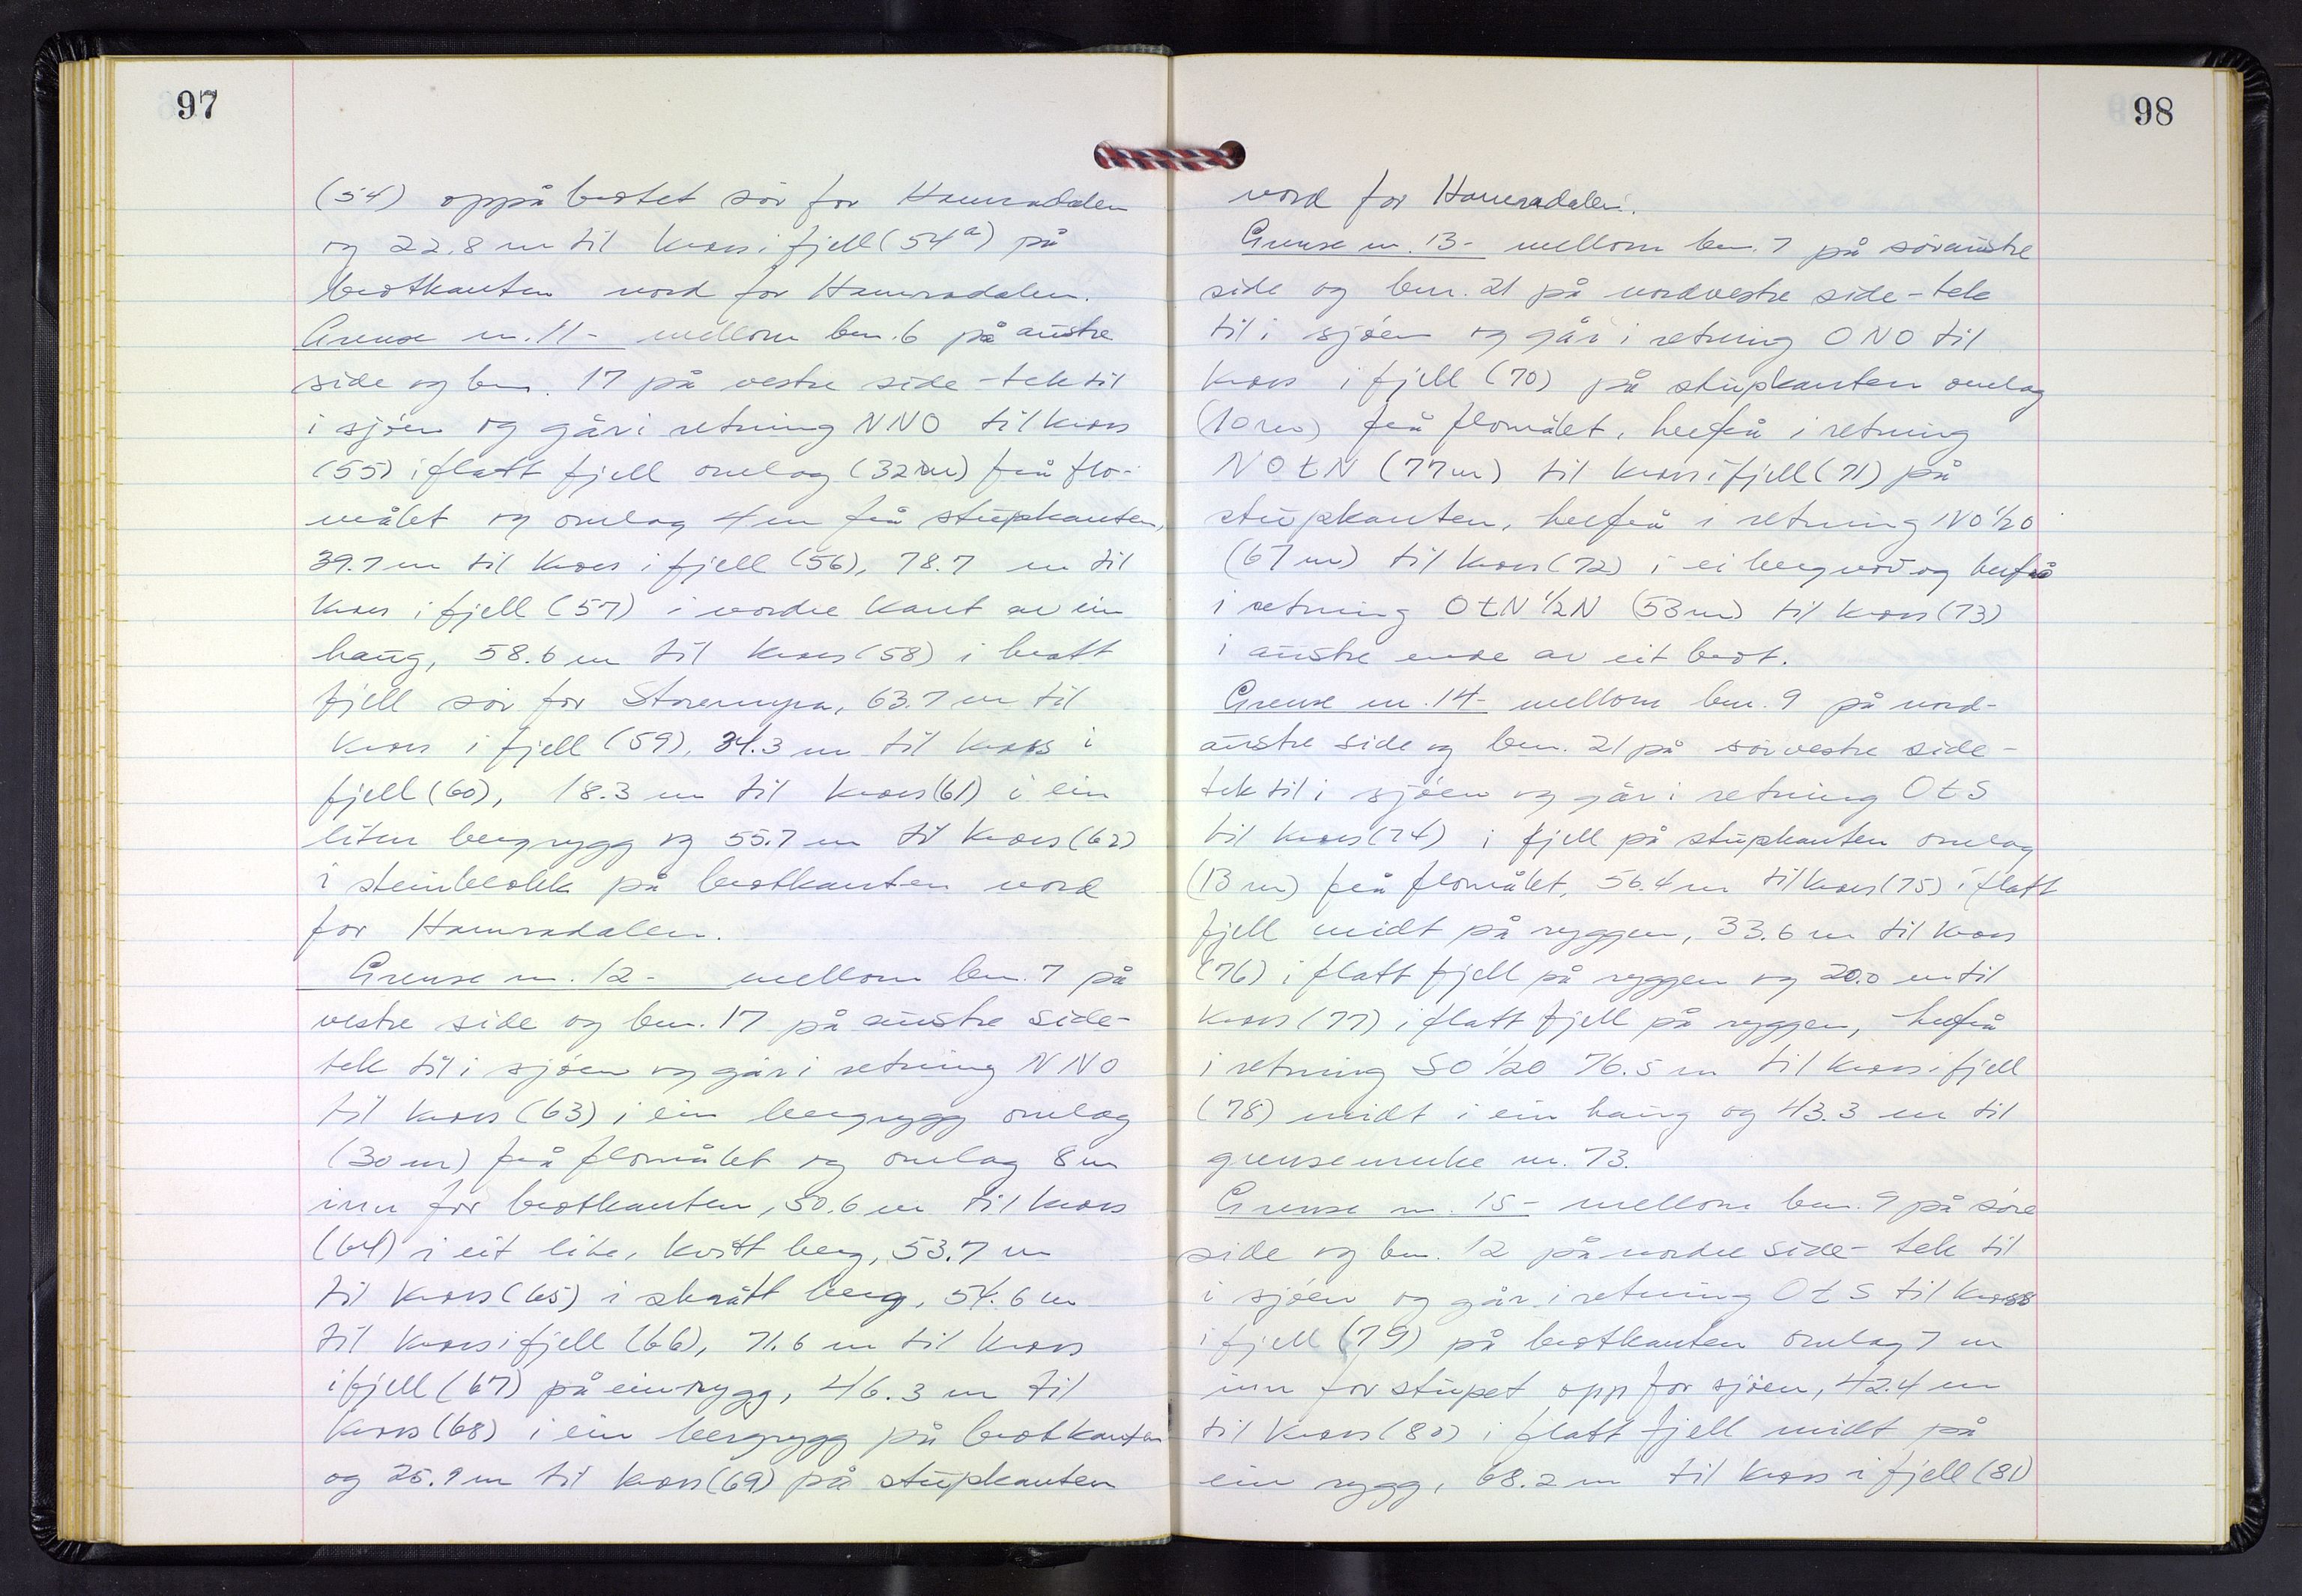 97
(54) oppå brotet sör for Hamradalen
og 22.8 m til kross i fjell (54a) på
brotkanten nord for Hamradalen.
Grense nr. 11 - mellom bnr. 6 på austre
side og bnr. 17 på vestre side - tek til
i sjöen og går i retning NNO til kross
(55) i flatt fjell omlag (32 m) frå flo-
målet og omlag 4 m frå stupkanten,
39.7 m til kross i fjell (56), 78.7 m til
kross i fjell (57) i nordre kant av ein
haug, 58.6 m til kross (58) i bratt
fjell sör for Storemyra, 63.7 m til
kross i fjell (59), 34.3 m til kross i
fjell (60), 18.3 m til kross (61) i ein
liten bergrygg og 55.7 m til kross (62)
i steinblokk på brotkanten nord
for Hamradalen.
Grense nr. 12 - mellom bnr. 7 på
vestre side og bnr. 17 på austre side -
tek til i sjöen og går i retning NNO
til kross (63) i ein bergrygg omlag
(30 m) frå flomålet og omlag 8 m
inn for brotkanten, 50.6 m til kross
(64) i eit lite, kvitt berg, 53.7 m
til kross (65) i skrått berg, 54.6 m
til kross i fjell (66), 71.6 m til kross
i fjell (67) på ein rygg, 46.3 m til
kross (68) i ein bergrygg på brotkanten
og 26.9 m til kross (69) på stupkanten
98
nord for Hamradalen.
Grense nr. 13 - mellom bnr. 7 på söraustre
side og bnr. 21 på nordvestre side - tek
til i sjöen og går i retning ONO til
kross i fjell (70) på stupkanten omlag
(10 m) frå flomålet, herfrå i retning
NOtN (77 m) til kross i fjell (71) på
stupkanten, herfrå i retning NO½O
(67 m) til kross (72) i ei bergnov og herfrå
i retning OtN½N (53 m) til kross (73)
i austre ende av eit brot.
Grense nr. 14 - mellom bnr. 9 på nord-
austre side og bnr. 21 på sörvestre side -
tek til i sjöen og går i retning OtS
til kross (74) i fjell på stupkanten omlag
(13 m) frå flomålet, 56.4 m til kross (75) i flatt
fjell midt på ryggen, 33.6 m til kross
(76) i flatt fjell på ryggen og 20.0 m til
kross (77) i flatt fjell på ryggen, herfrå
i retning SO½O 76.5 m til kross i fjell
(78) midt i ein haug og 43.3 m til
grensemerke nr. 73.
Grense nr. 15 - mellom bnr. 9 på söre
side og bnr. 12 på nordre side - tek til
i sjöen og går i retning OtS til kross
i fjell (79) på brotkanten omlag 7 m
inn for stupet opp for sjöen, 42.4 m
til kross (80) i flatt fjell midt på
ein rygg, 68.2 m til kross i fjell (81)